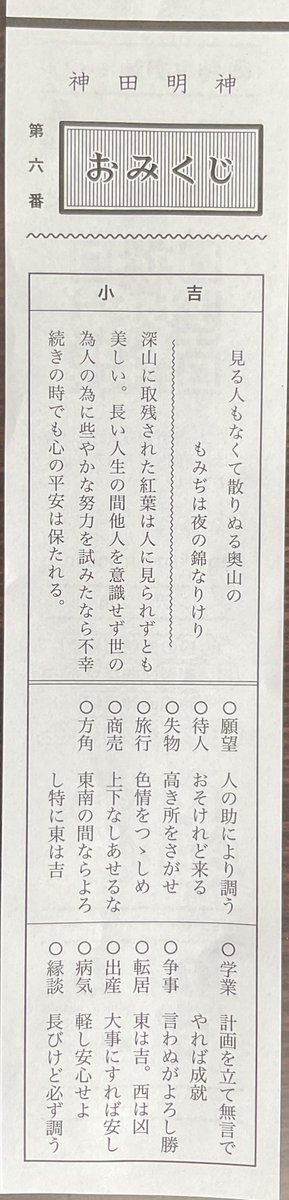 神田明神
第六番
おみくじ
小吉
見る人もなくて散りぬる奥山の
もみぢは夜の錦なりけり
深山に取残された紅葉は人に見られずとも
美しい。長い人生の間他人を意識せず世の
為人の為に些やかな努力を試みたなら不幸
続きの時でも心の平安は保たれる。
〇願望 人の助により調う
〇待人 おそけれど来る
〇失物 高き所をさがせ
〇旅行 色情をつゝしめ
〇商売 上下なしあせるな
〇方角 東南の間ならよろ
し特に東は吉
〇学業 計画を立て無言で
やれば成就
〇争事 言わぬがよろし勝
〇転居 東は吉。西は凶
〇出産 大事にすれば安し
〇病気 軽し安心せよ
〇縁談 長びけど必ず調う